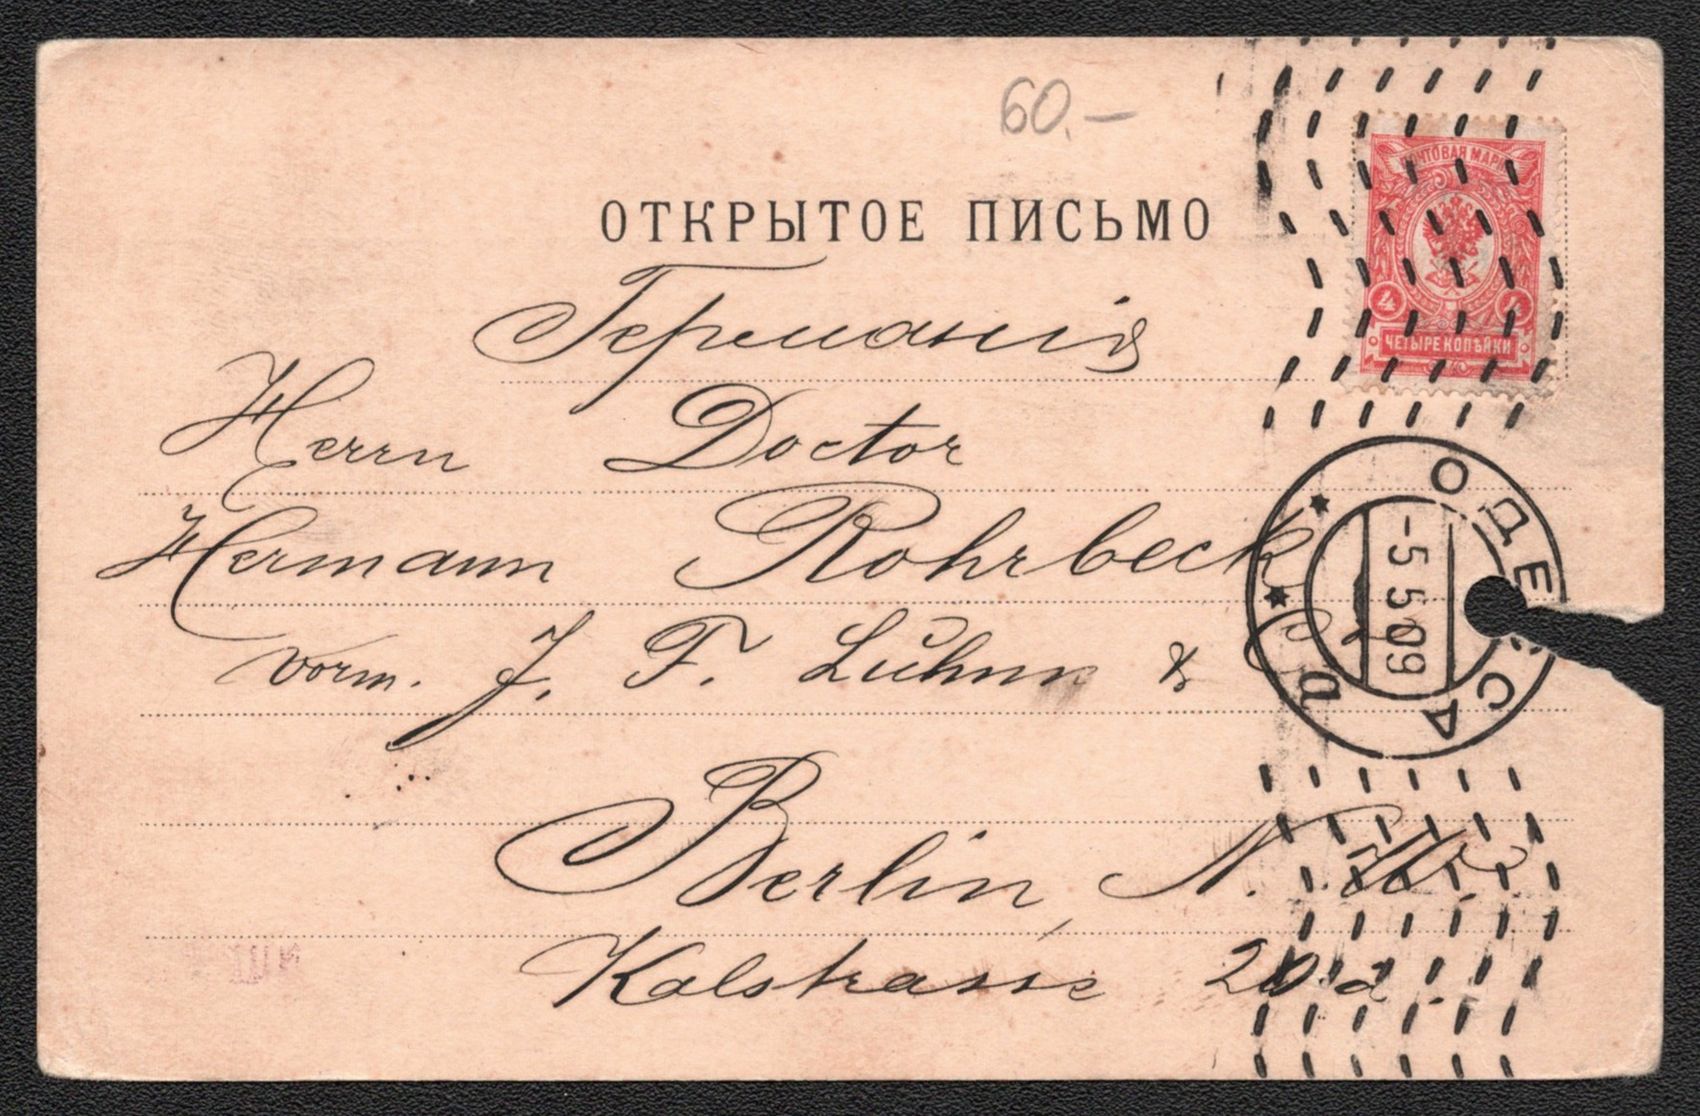 60.-
ОТКРЫТОЕ ПИСЬМО
ПОЧТОВАЯ МАРКА
4 4
ЧЕТЫРЕ КОПѢЙКИ
Германія
Herrn Doctor
Hermann Rohrbeck
vorm. J. F. Luhmn &
ОДЕССА
-5.5.09
Berlin, N.W.
Kalstrasse 20a.